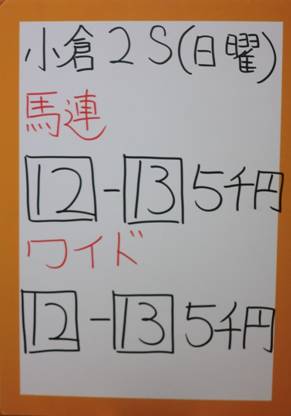 小倉2S(日曜)
馬連
12-13 5千円
ワイド
12-13 5千円